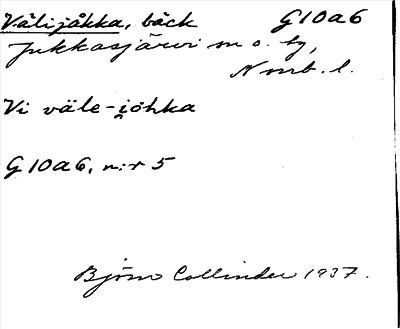 Välijåkka, bäck G10a6
Jukkasjärvi sn o. by,
Nbtt. l.
Vi väle-i̯ȯhka
G10a6, n:r 5
Björn Collinder 1937.